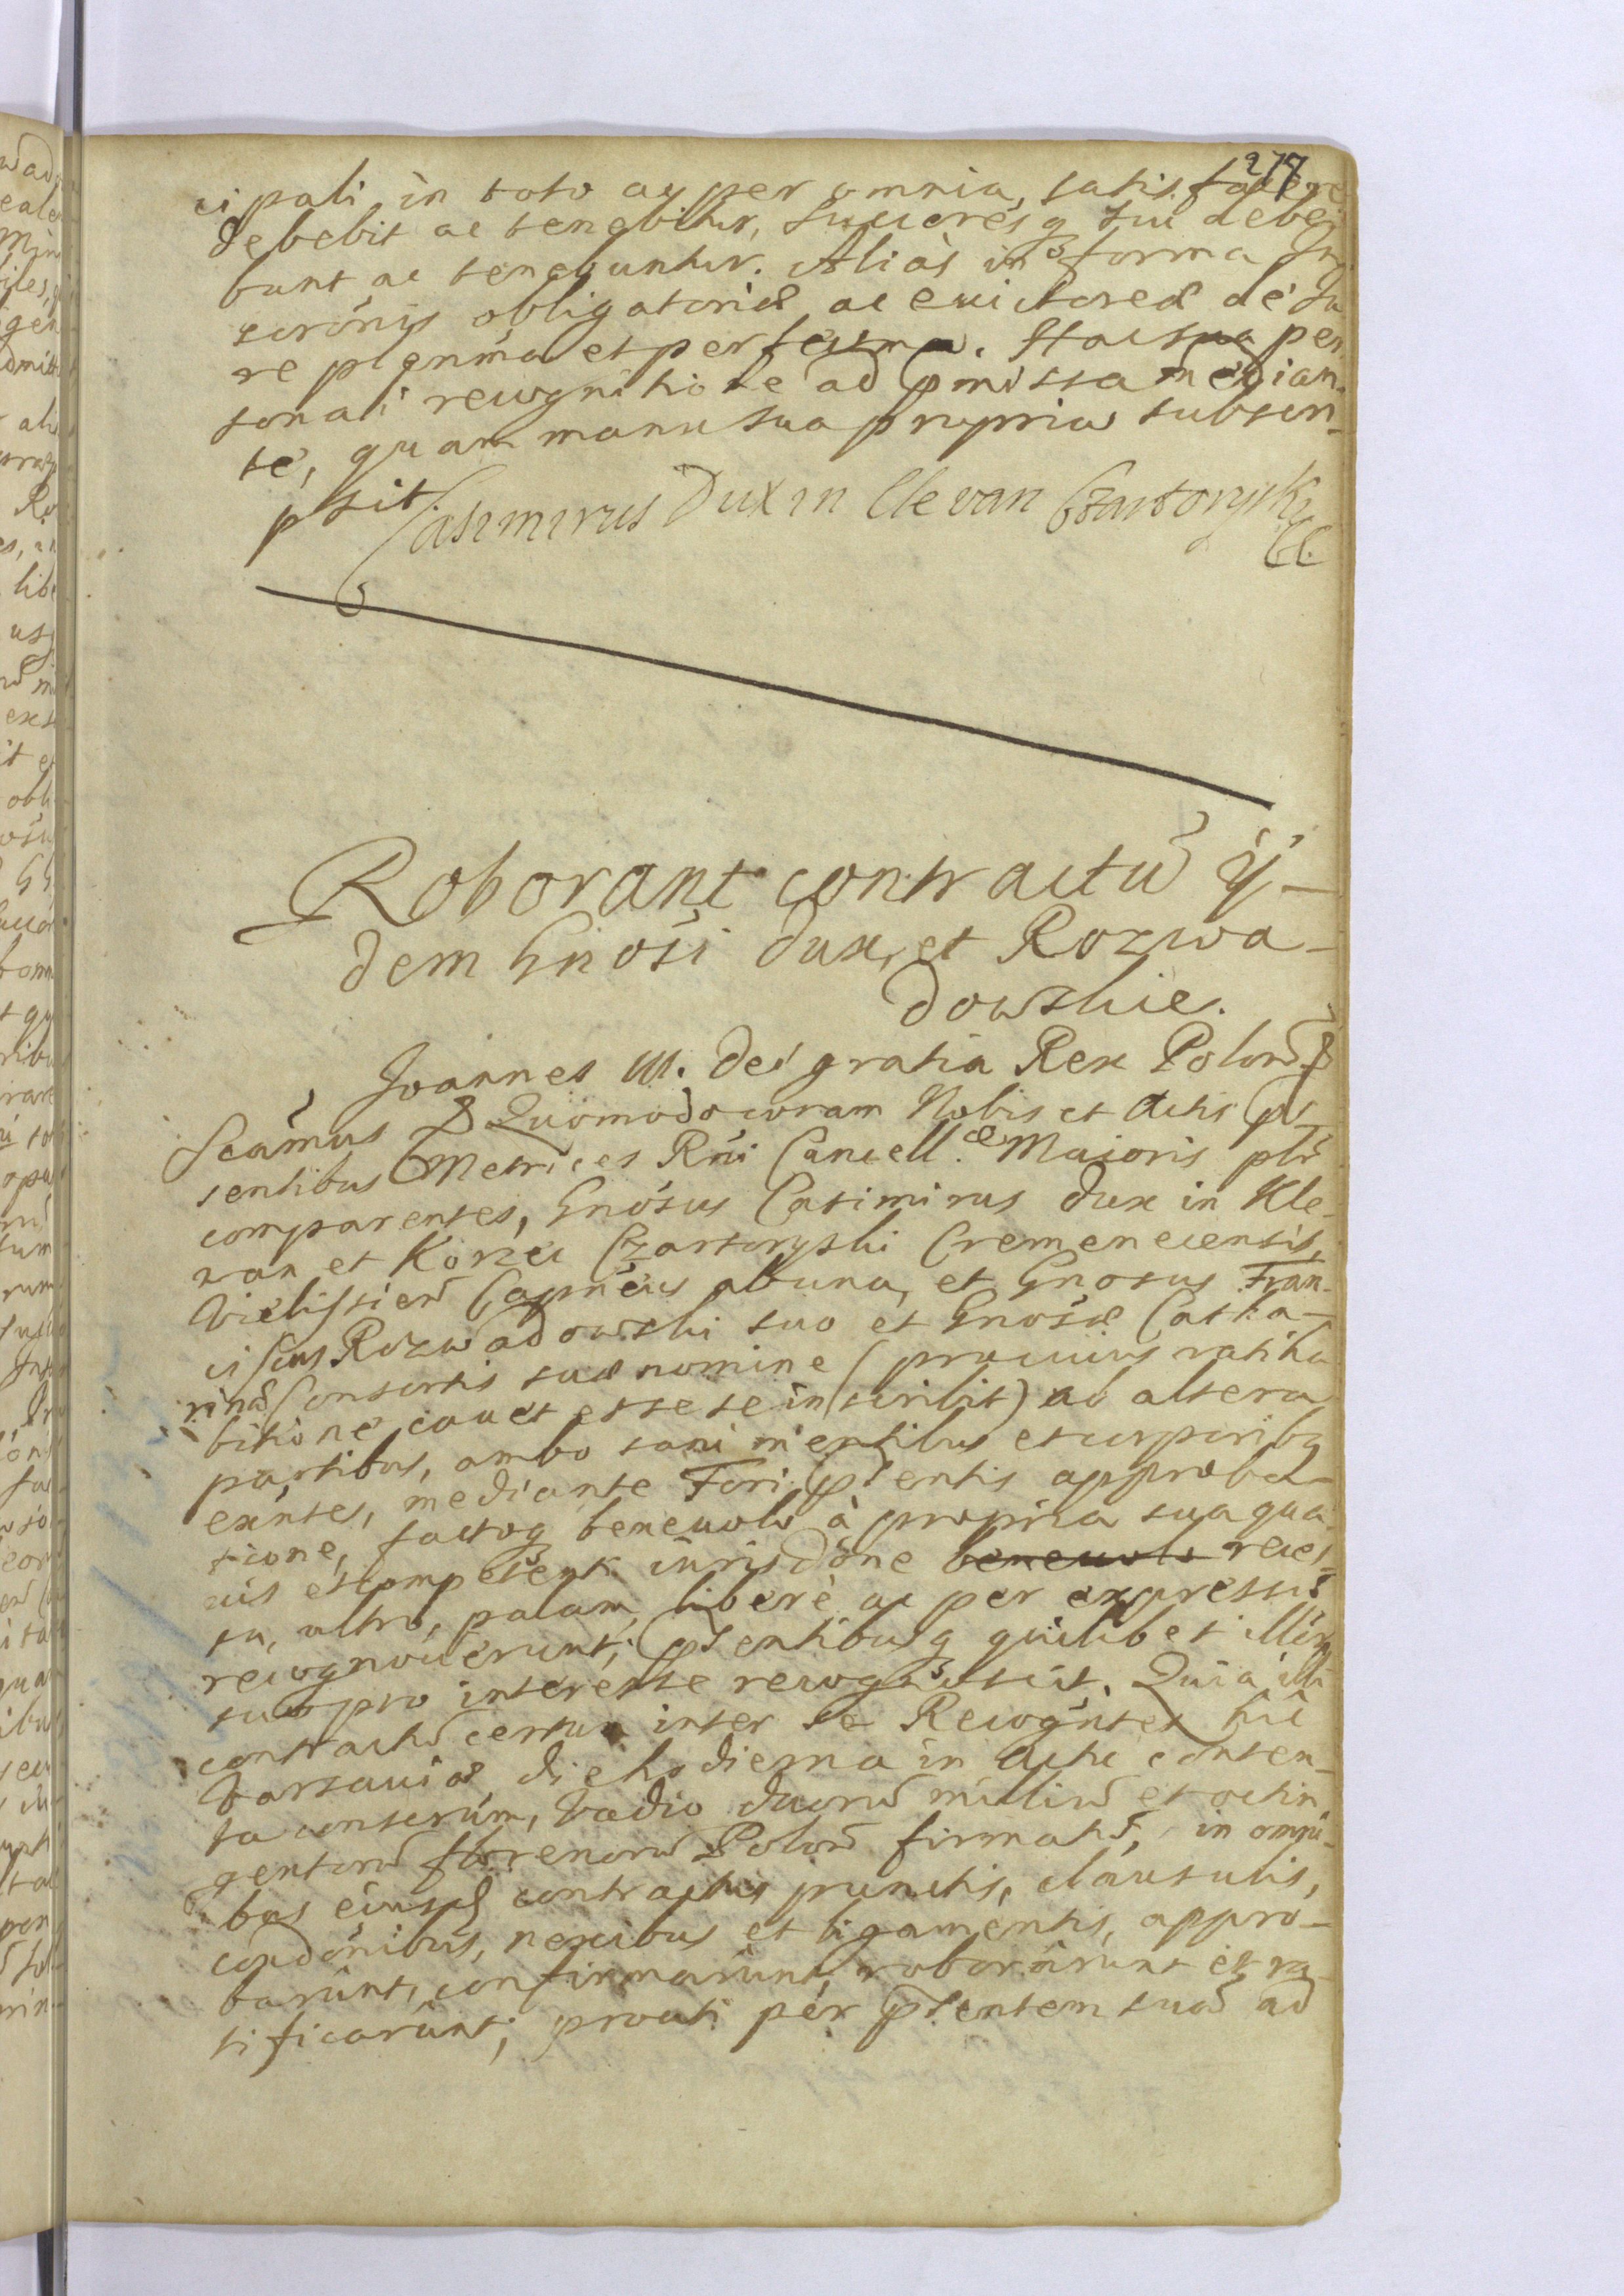 277
cipali in toto ac per omnia, satis facere
debebit ac tenebitur, Succoresq sui debe
bunt ac tenebuntur. Aliàs in forma In
scrōnis obligatoriæ ac euictoreæ de Ju
re plenma et perfectma. Hac sua per
sonali recognitione ad pmissa median
te, quam manu sua propria subscri
psit.
Casimirus Dux in Clevan Czartoryski
Roborant contractū ij-
dem Gnosi Dux, et Rozwa-
dowskie.
Joannes III. Dei gratia Rex Polonō
Scāmus Quomodo coram Nobis et Actis p
sentibus Metrices Rni Cancell.æ Maioris plr
comparentes, Gnosus Casimirus Dux in Kle-
wan et Korzec Czartoryski Cremenecensis,
Vielissien Capneus ab una, et Gnosus Fran-
ciscus Rozwadowski suo et Gnosæ Catha-
rinæ Consortis suæ nomine (pro cuius ratiha
bitione cauet et se se inscribit) ab altera
partibus, ambo sani mentibus et corporibq
exintes, mediante Fori pentis approba-
tione, factoq beneuolo à propria sua qua
uis et competent. iurisdōne beneuolo reces
su, ultro, palam, libere ac per expressū
recognouerunt; psentibusq quilibet illor
suo pro interesse recognoscit. Quia illi
contractū certum inter se Recogntes hic
Varsauiæ die hodierna in Actu conten-
ta conserum, Vadio duorū milliū et octin
gentorū florenorū Polonō firmat, in omni-
bus eiusd contractus punctis, clausulis,
condōnibus, nexibus et ligamentis, appro-
barunt, confirmarunt, roborarunt et ra
tificarunt; prouti per psentem suā ad